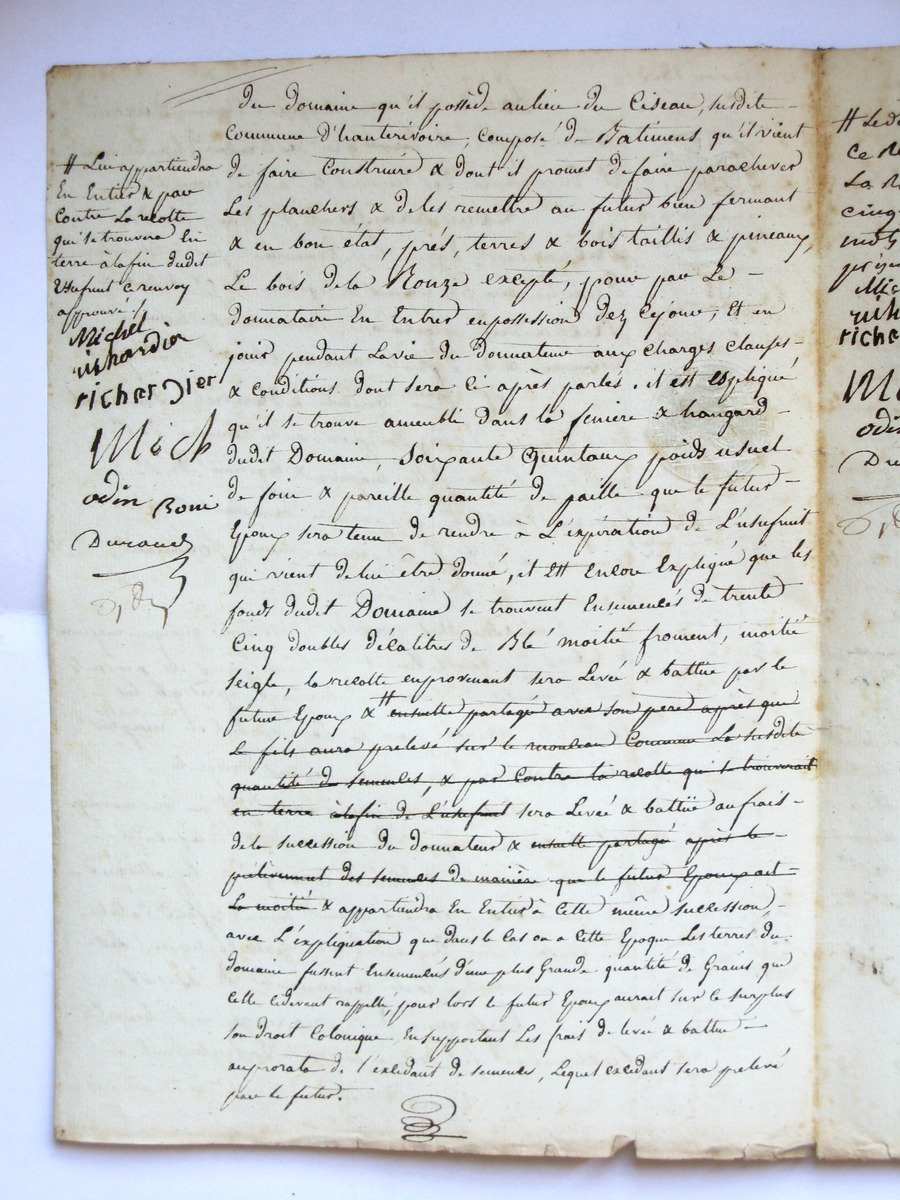 du domaine qu'il possède au lieu du Ciseau, susdite
Commune d'hauterivoire, composé de Batimens qu'il vient
de faire Construire & dont il promet de faire parachever
Les planchers & de les remettre au futur bien fermant
& en bon état, prés, terres & bois taillis & pineaux,
Le bois de la Ronze excepté, pour par Le
donnataire En Entrer en possession dez Cejour, Et en
jouir pendant La vie du donnateur aux charges clauses
& conditions dont sera Ci après parlé. il est Expliqué
qu'il se trouve amenblé dans la feniere & hangard
dudit Domaine, Soixante Quintaux poids usuel
de foin & pareille quantité de paille que le futur
Epoux sera tenu de rendre à L'expiration de L'usufruit
qui vient de lui être donné, it Est Encore Expliqué que les
fonds dudit Domaine se trouvent Ensemencés de trente
Cinq doubles décalitres de Blé moitié froment, moitié
seigle, la recolte en provenant sera Levée & battüe par le
futur Epoux & # ensuite partagé avec son pere après que
Le fils aura prelevé sur le monceau Commun La susdite
quantité de semences, & par Contre la recolte qui se trouverait
en terre à la fin de L'usufruit sera Levée & battüe au frais
de la succession du donnateur & ensuite partagé après le
prélevement des semences de manière que le futur Epoux ait
La moitié & appartiendra En Entier à Cette même succession,
avec L'expliquation que dans le Cas ou a Cette Epoque Les terres du
domaine fussent Ensemencés d'une plus Grande quantité de Grains que
Celle cidevant rappellé, pour lors le futur Epoux aurait sur ce surplus
son droit Colonique En supportant Les frais de levée & battue
au prorata de l'excédant de semences, Lequel excédant sera prelevé
par le futur.
# Lui appartiendra
En Entier & par
Contre La recolte
qui se trouvera En
terre à la fin dudit
Usufruit renvoy
approuvé
Michel
richardier
richardier
Mich
odin Boni
Durand
# Le d
Ce
La
cinq
mots
Mic
richa
M
odin
Du